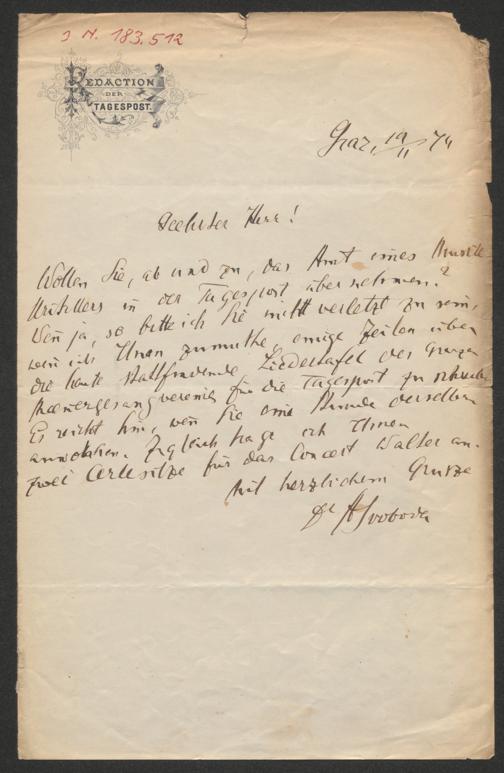 J N. 183.512
REDACTION
DER
TAGESPOST.
Graz, 19/11 74
Geehrter Herr!
Wollen Sie, ab und zu, das Amt eines Musik
kritikers in der Tagespost übernehmen?
Wen̄ ja, so bitte ich Sie nicht verletzt zu sein,
wen̄ ich Ihnen zumuthe, einige Zeilen über
die heute stattfindende Liedertafel des Grazer
Männergesangvereins für die Tagespost zu schreiben
Es reicht hin, wen̄ Sie eine Stunde derselben
anwohnen. Zugleich trage ich Ihnen
zwei Cerclesitze für das Concert Walter an.
Mit herzlichem Grusze
Dr ASvoboda